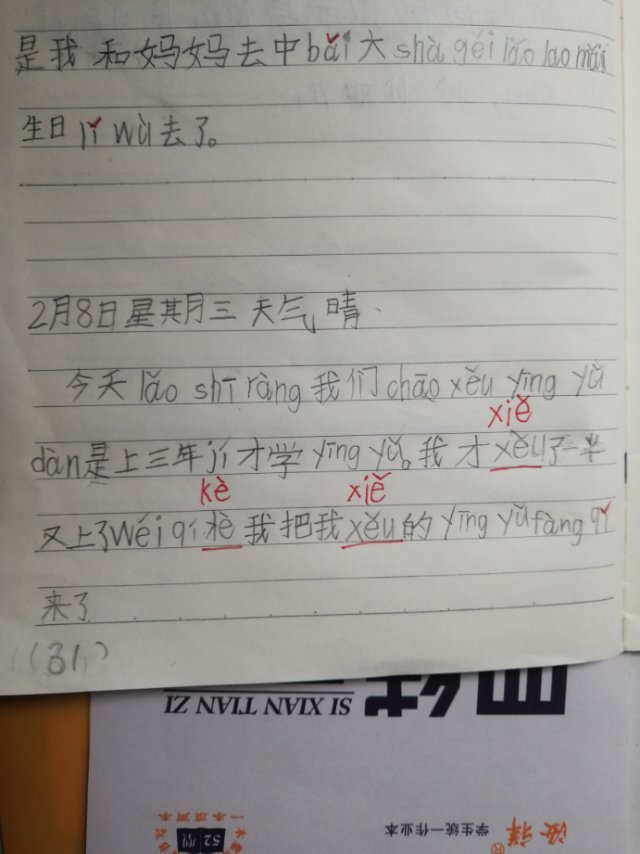 是我和妈妈去中bǎi大shà gěi lǎo lao mǎi
生日lǐ wù去了。
2月8日星其月三 天气晴.
今天lǎo shī ràng我们chāo xěu yīng yǔ
xiě
dàn是上三年jí才学yīng yǔ。我才xěu了一半
kè xiě
又上了wéi qí kè我把我xěu的yīng yǔ fàng qǐ
来了
SI XIAN TIAN ZI
学生统一作业本
52型